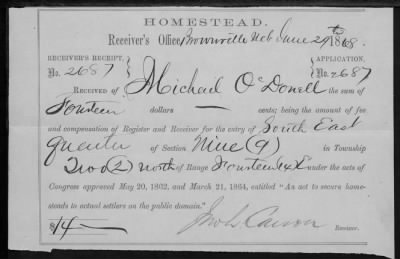 HOMESTEAD.
Receiver's Office, Brownville Neb June 29th 1868.
RECEIVER'S RECEIPT, APPLICATION,
No. 2687 No. 2687
RECEIVED OF Michael O'Donell the sum of
Fourteen dollars — cents; being the amount of fee
and compensation of Register and Receiver for the entry of South East
quarter of Section Nine (9) in Township
Two (2) north of Range Fourteen 14 E under the acts of
Congress approved May 20, 1862, and March 21, 1864, entitled "An act to secure home-
steads to actual settlers on the public domain."
$14— Jno L. Carson Receiver.